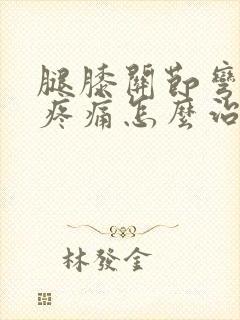 腿膝關節彎
疼痛怎麼治
林發金